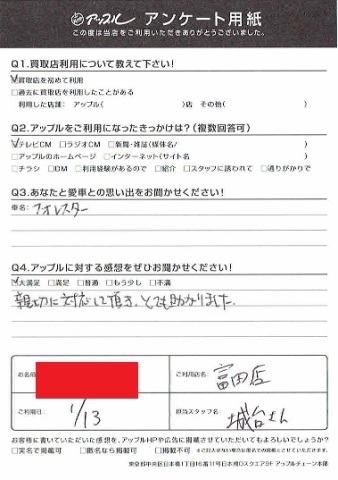 アップル アンケート用紙
この度は当店をご利用いただきありがとうございました。
Q1.買取店利用について教えて下さい!
☑買取店を初めて利用
□過去に買取店を利用したことがある
利用した店舗: アップル( )店 その他( )
Q2.アップルをご利用になったきっかけは?(複数回答可)
☑テレビCM □ラジオCM □新聞・雑誌(媒体名/ )
□アップルのホームページ □インターネット(サイト名 )
□チラシ □DM □利用経験があるので □紹介 □スタッフに誘われて □通りがかりで
Q3.あなたと愛車との思い出をお聞かせください!
車名: フォレスター
Q4.アップルに対する感想をぜひお聞かせください!
☑大満足 □満足 □普通 □もう少し □不満
親切に対応して頂き、とても助かりました。
お名前
ご利用店名: 富田店
ご利用日: 1/13
担当スタッフ名: 城台さん
お客様に書いていただいた感想を、アップルHPや広告に掲載させていただいてもよろしいでしょうか?
□実名で掲載可 □匿名なら掲載可 □掲載不可
東京都中央区日本橋1丁目16番11号日本橋Dスクエア9F アップルチェーン本部